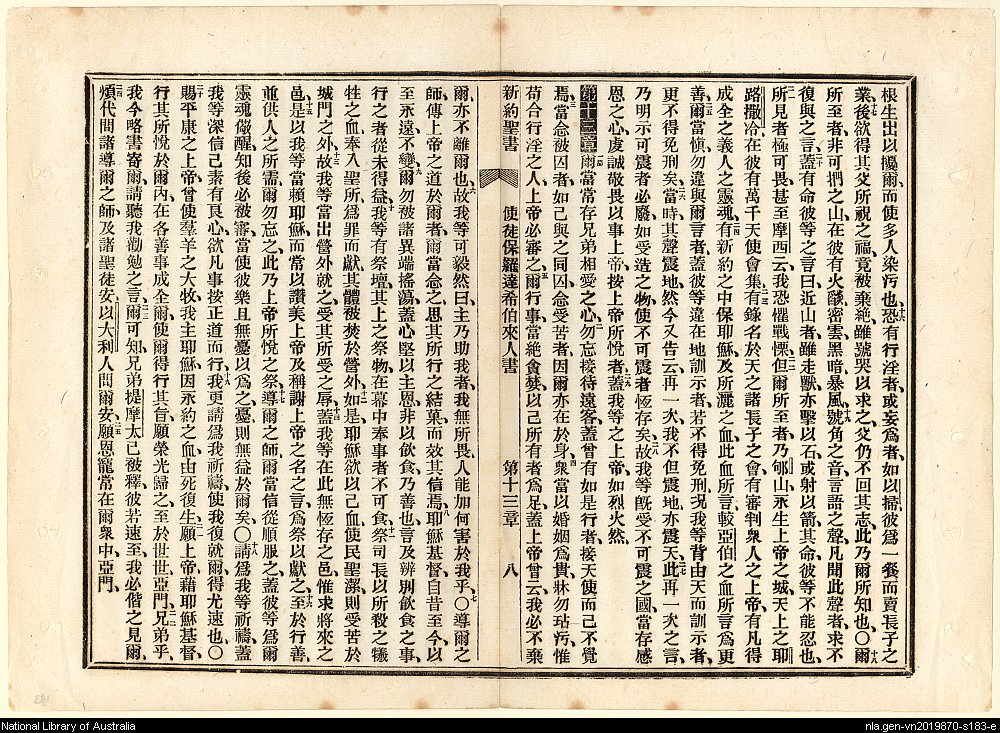 根生出以擾爾而使多人染汚也恐有行淫者或妄爲者如以掃彼爲一餐而賣長子之
業後欲得其父所祝之福竟被棄絶雖號哭以求之父仍不回其志此乃爾所知也〇爾
所至者非可捫之山在彼有火燄密雲黑暗暴風號角之音言語之聲凡聞此聲者求不
復與之言蓋有命彼等之言曰近山者雖走獸亦擊以石或射以箭其命彼等不能忍也
所見者極可畏甚至摩西云我恐懼戰慄但爾所至者乃郇山永生上帝之城天上之耶
路撒冷在彼有萬千天使會集有錄名於天之諸長子之會有審判衆人之上帝有凡得
成全之義人之靈魂有新約之中保耶穌及所灑之血此血所言較亞伯之血所言爲更
善爾當愼勿違與爾言者蓋彼等違在地訓示者若不得免刑況我等背由天而訓示者
更不得免刑矣當時其聲震地然今又告云再一次我不但震地亦震天此再一次之言
乃明示可震者必廢如受造之物使不可震者恆存矣故我等既受不可震之國當存感
恩之心虔誠敬畏以事上帝按上帝所悅者蓋我等之上帝如烈火然
第十三章 爾當常存兄弟相愛之心勿忘接待遠客蓋曾有如是行者接天使而己不覺
焉當念被囚者如己與之同囚念受苦者因爾亦在於身衆當以婚姻爲貴牀勿玷汚惟
苟合行淫之人上帝必審之爾行事當絶貪婪以己所有者爲足蓋上帝曾云我必不棄
新約聖書 使徒保羅達希伯來人書 第十三章 八
爾亦不離爾也故我等可毅然曰主乃助我者我無所畏人能加何害於我乎〇導爾之
師傅上帝之道於爾者爾當念之思其所行之結菓而效其信焉耶穌基督自昔至今以
至永遠不變爾勿被諸異端搖蕩蓋心堅以主恩非以飲食乃善也言及辨別飲食之事
行之者從未得益我等有祭壇其上之祭物在幕中奉事者不可食祭司長以所殺之犧
牲之血奉入聖所爲罪而獻其體被焚於營外如是耶穌欲以己血使民聖潔則受苦於
城門之外故我等當出營外就之受其所受之辱蓋我等在此無恆存之邑惟求將來之
邑是以我等當賴耶穌而常以讚美上帝及稱謝上帝之名之言爲祭以獻之至於行善
並供人之所需爾勿忘之此乃上帝所悅之祭導爾之師爾當信從順服之蓋彼等爲爾
靈魂儆醒知後必被審當使彼樂且無憂以爲之憂則無益於爾矣〇請爲我等祈禱蓋
我等深信己素有良心欲凡事按正道而行我更請爲我祈禱使我復就爾得尤速也〇
賜平康之上帝曾使羣羊之大牧我主耶穌因永約之血由死復生願上帝藉耶穌基督
行其所悅於爾內在各善事成全爾使爾得行其旨願榮光歸之至於世世亞門兄弟乎
我今略書寄爾請聽我勸勉之言爾可知兄弟提摩太已被釋彼若速至我必偕之見爾
煩代問諸導爾之師及諸聖徒安以大利人問爾安願恩寵常在爾衆中亞門
National Library of Australia
nla.gen-vn2019870-s183-e